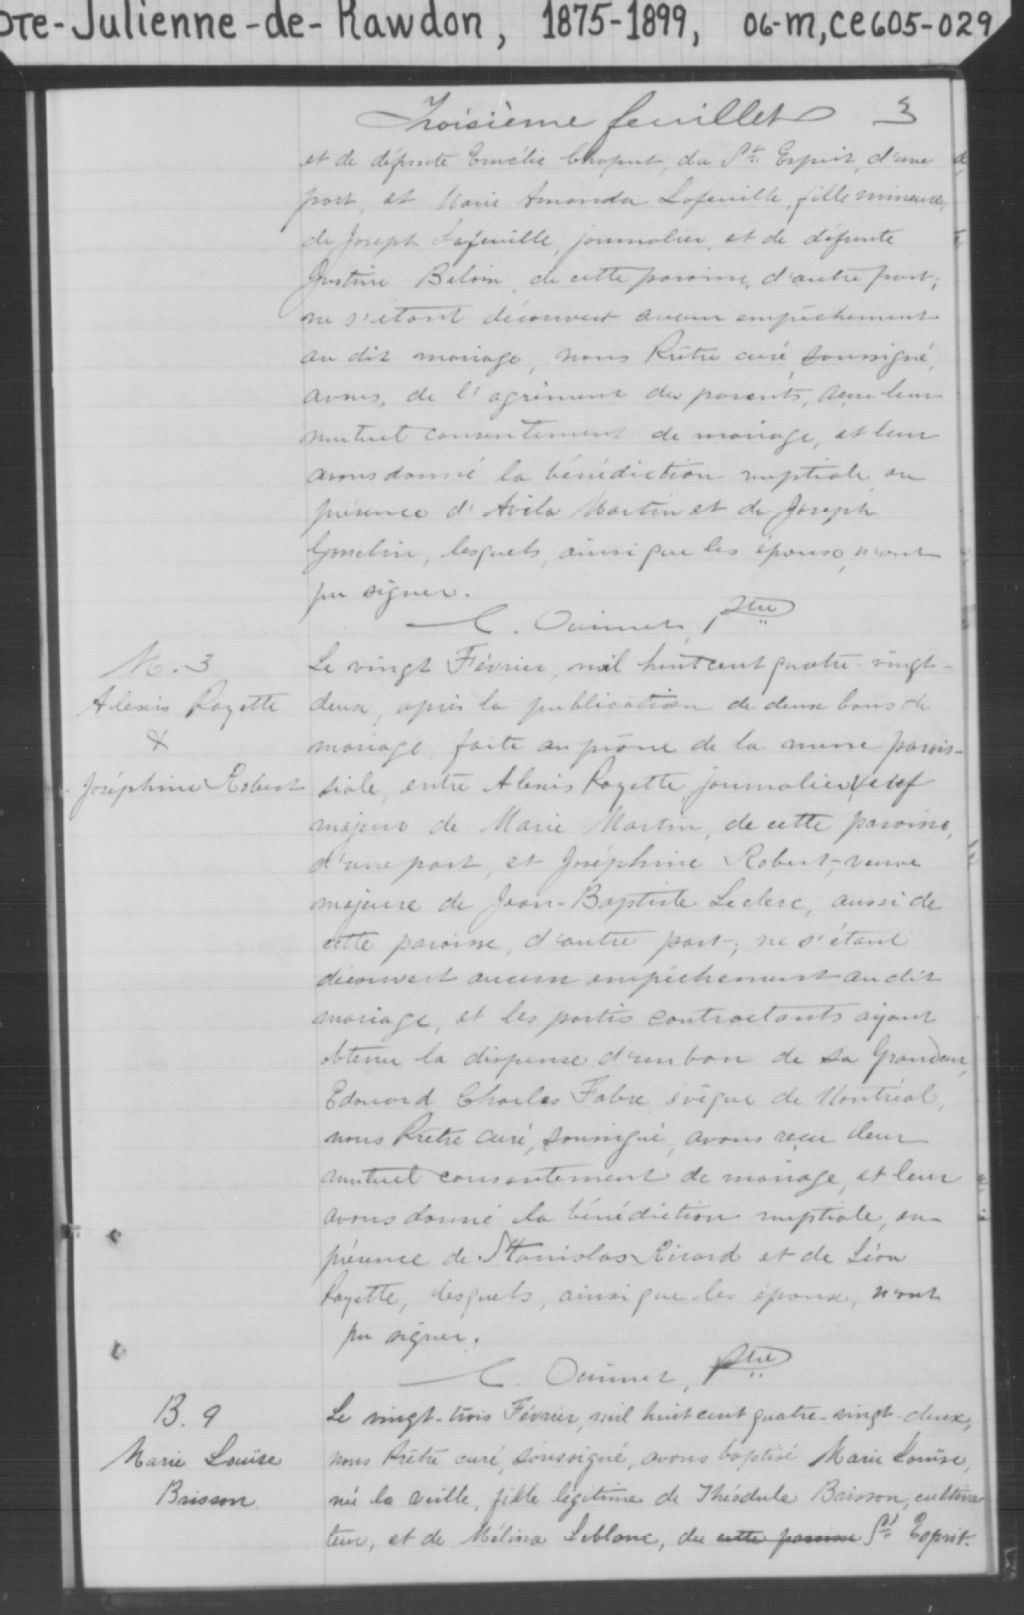 Ste-Julienne-de-Rawdon, 1875-1899, 06-M, CE605-029
Troisième feuillet 3
et de défunte Emélie Chaput, du St. Esprit, d'une
part, et Marie Amanda Lafeuille, fille mineure,
de Joseph Lafeuille, journalier, et de défunte
Justine Beloin, de cette paroisse, d'autre part;
ne s'étant découvert aucun empêchement
au dit mariage, nous Prêtre curé, soussigné,
avons, de l'agrément des parents, reçu leur
mutuel consentement de mariage, et leur
avons donné la bénédiction nuptiale en
présence d'Avila Martin et de Joseph
Gosselin, lesquels, ainsi que les époux, n'ont
pu signer.
C. Ouimet, Ptre
M. 3
Alexis Payette
&
Joséphine Robert
Le vingt Février, mil huit cent quatre-vingt-
deux, après la publication de deux bans de
mariage, faite au prône de la messe parois-
siale, entre Alexis Payette, journalier, veuf
majeur de Marie Martin, de cette paroisse,
d'une part, et Joséphine Robert, veuve
majeure de Jean-Baptiste Leclerc, aussi de
cette paroisse, d'autre part; ne s'étant
découvert aucun empêchement au dit
mariage, et les partis contractants ayant
obtenu la dispense d'un ban de Sa Grandeur,
Edouard Charles Fabre, évêque de Montréal,
nous Prêtre curé, soussigné, avons reçu leur
mutuel consentement de mariage, et leur
avons donné la bénédiction nuptiale, en
présence de Stanislas Ricard et de Léon
Payette, lesquels, ainsi que les époux, n'ont
pu signer.
C. Ouimet, Ptre
B. 9
Marie Louise
Brisson
Le vingt-trois Février, mil huit cent quatre-vingt-deux,
nous Prêtre curé, soussigné, avons baptisé Marie Louise,
née la veille, fille légitime de Théodule Brisson, cultiva-
teur, et de Mélina Leblanc, de cette paroisse St. Esprit.